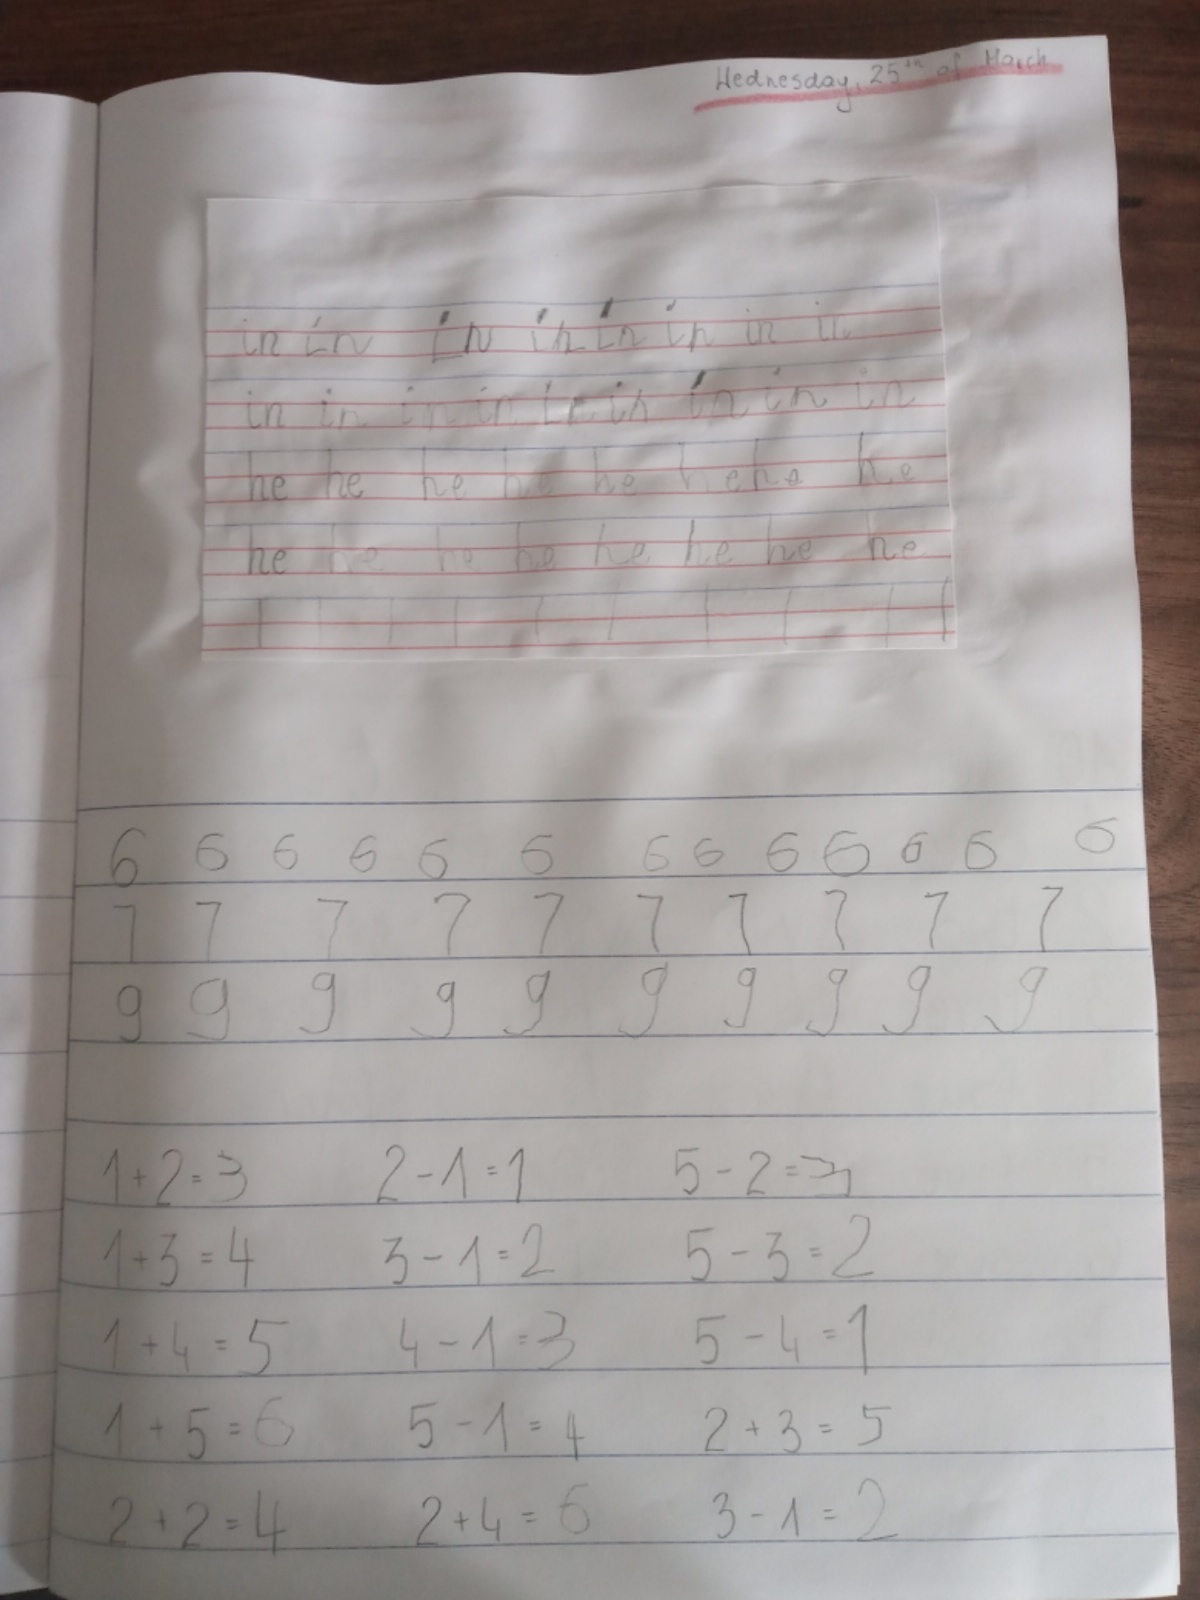 Wednesday, 25th of March
in in in in in in in in
in in in in in in in in in
he he he he he he he he
he he he he he he he he
| | | | | | | | | |
6 6 6 6 6 6 6 6 6 6 6 6 6
7 7 7 7 7 7 7 7 7 7
9 9 9 9 9 9 9 9 9 9
1+2=3 2-1=1 5-2=3
1+3=4 3-1=2 5-3=2
1+4=5 4-1=3 5-4=1
1+5=6 5-1=4 2+3=5
2+2=4 2+4=6 3-1=2